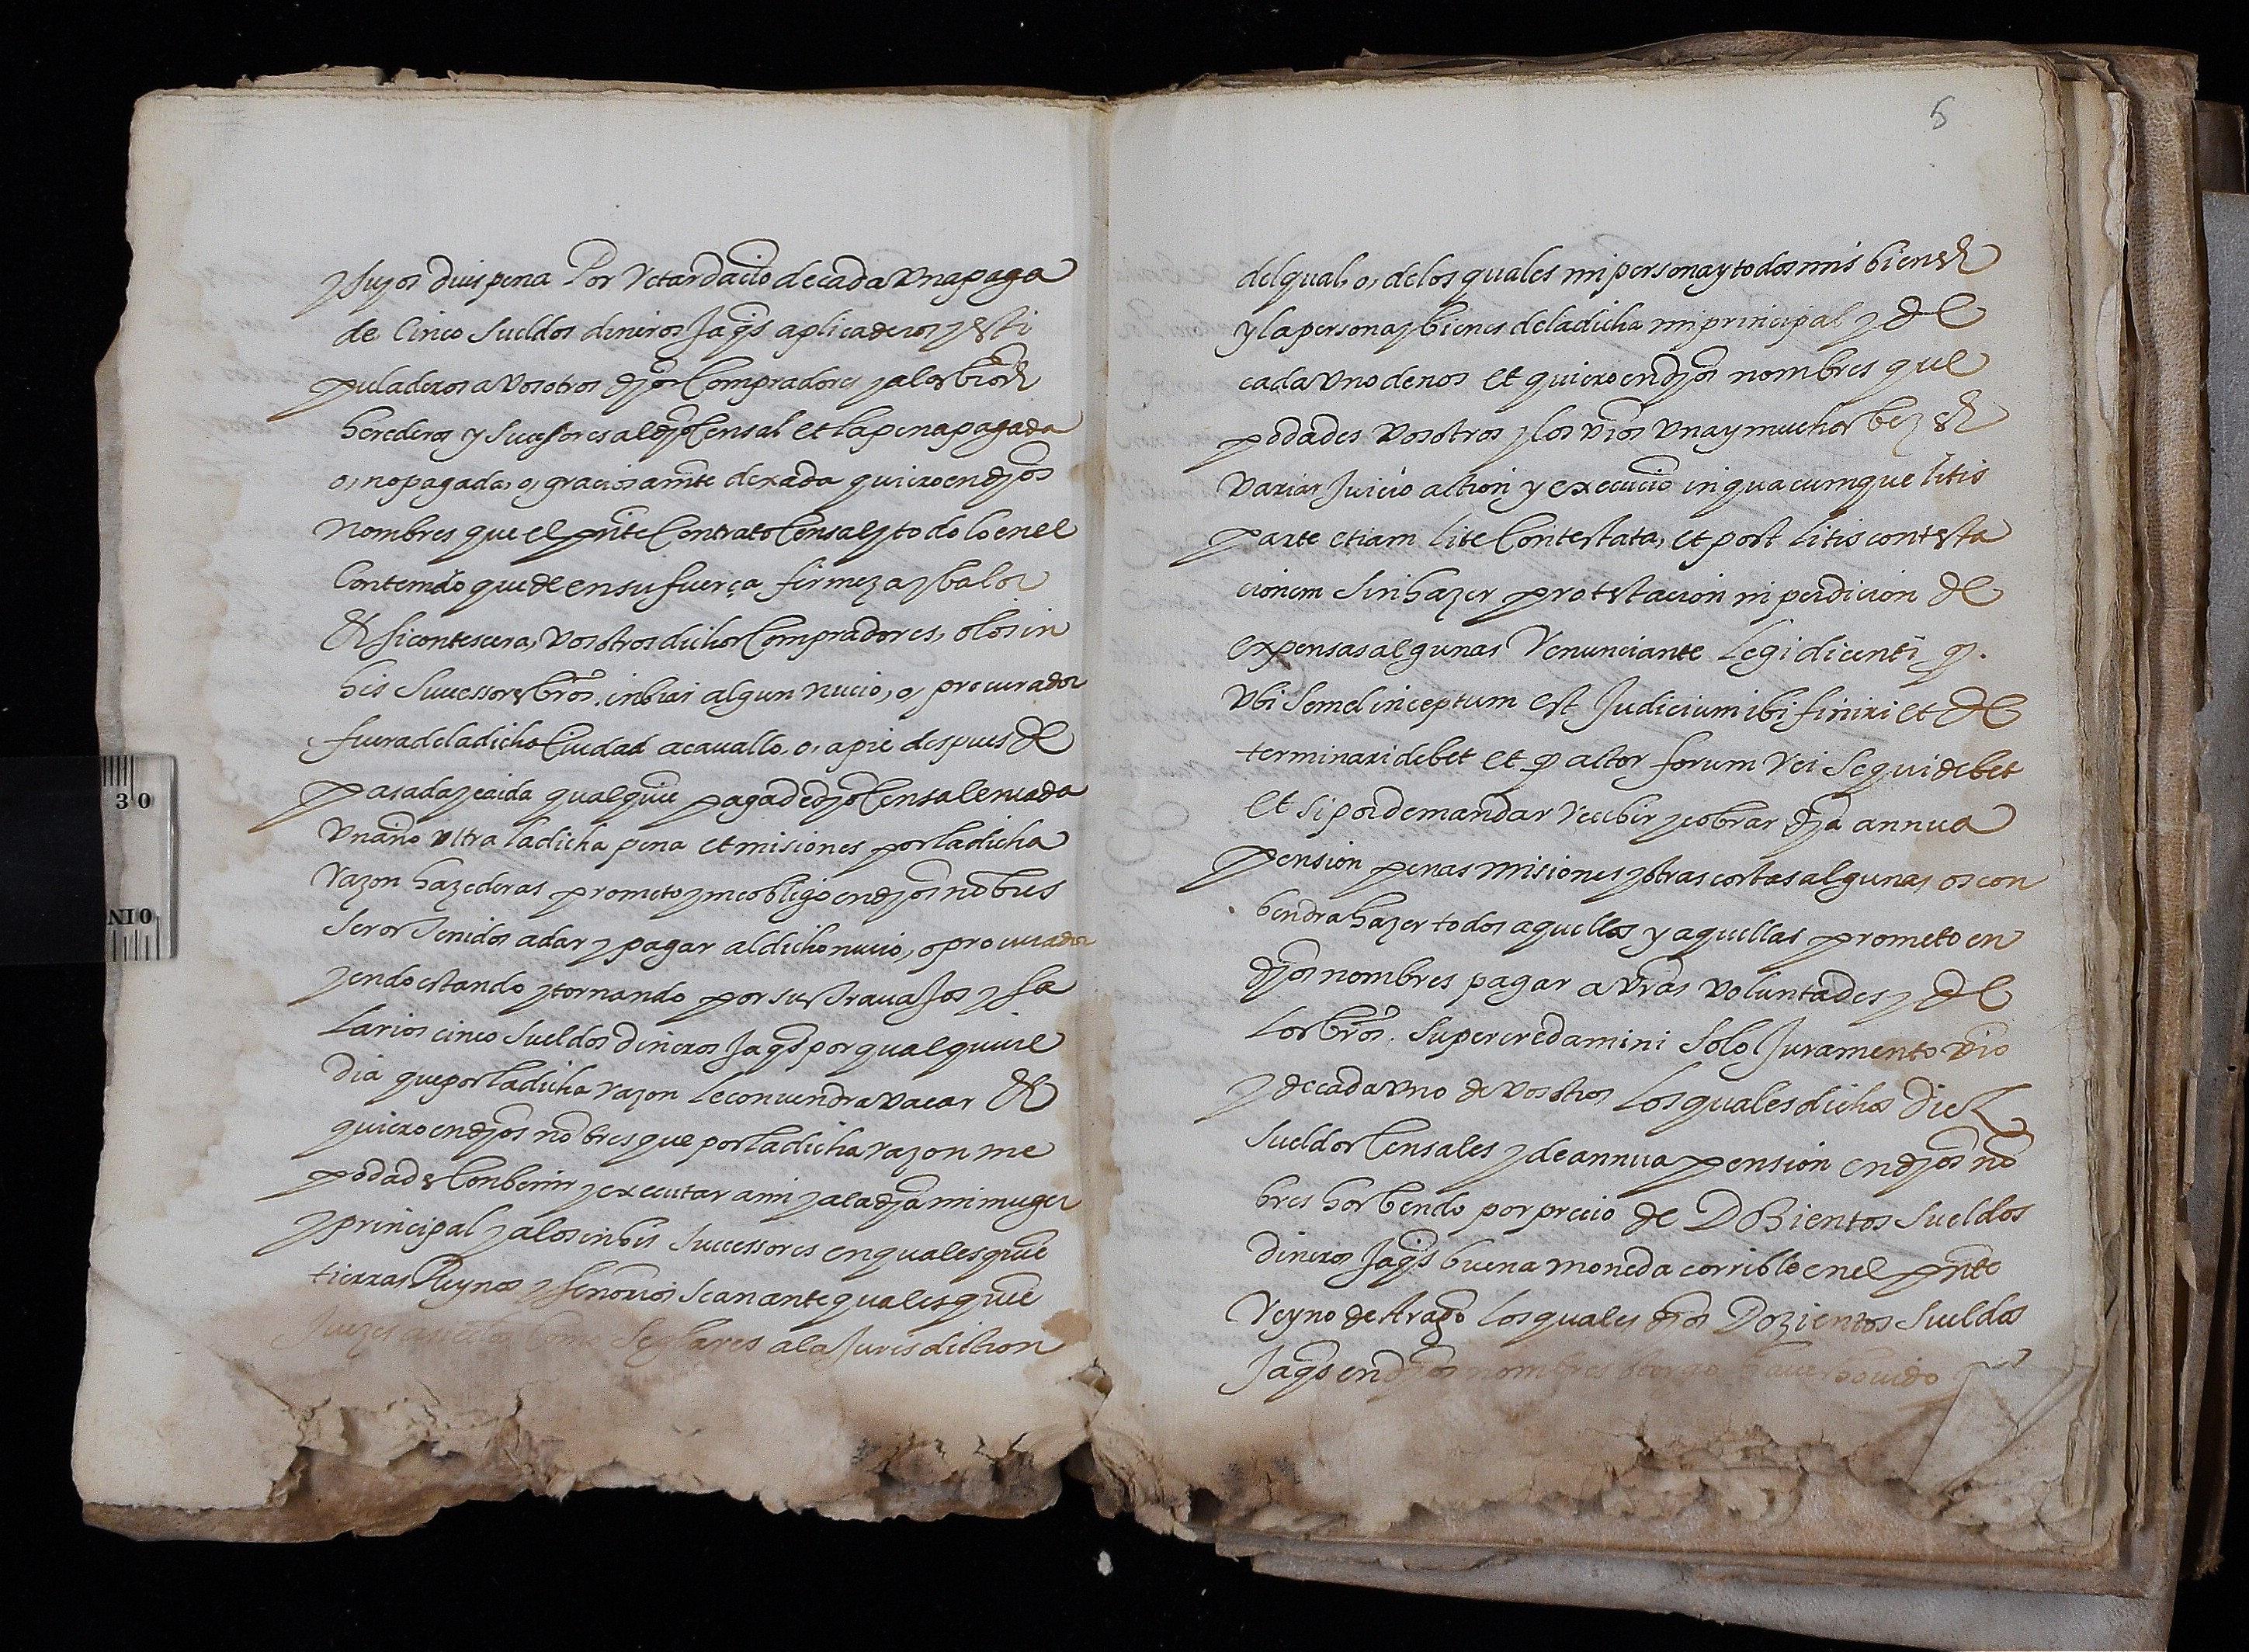 y suyos dius pena Por retardacio de cada una paga
de Cinco sueldos dineros Jaqs aplicaderos y esti
puladeros a vosotros djos Compradores y a los bros
herederos y sucessores al djo Censal et la pena pagada
o, no pagada, o, graciosamte dexada quiero en djos
nombres que el pnte Contrato Censal y todo lo en el
Contenido quede en su fuerça firmeza y balor
Et si contescera, vosotros dichos Compradores, o los in
his Successores bros. inbiar algun nucio, o, procurador
fuera de la dicha Ciudad a cauallo, o, a pie despues de
pasada y caida qualquiere paga de djo Censal en cada
un año ultra la dicha pena et misiones por la dicha
razon hazederas prometo y me obligo en djos nobres
seros tenidos a dar y pagar al dicho nucio, o procurador
yendo estando y tornando por sus trauajos y sa
larios cinco sueldos dineros Jaqs por qualquiere
dia que por la dicha razon le conuendra vacar Et
quiero en djos nobres que por la dicha razon me
podades Conbenir y executar a mi y a la dja mi muger
y principal y a los inhis successores en qualesquiere
tierras Reynos y señorios sean ante qualesquiere
Juezes seglares a la Jurisdiction
30
NIO
5
del qual, o, de los quales mi persona y todos mis bienes
y la persona y bienes de la dicha mi principal y de
cada uno de nos et quiero en djos nombres que
podades vosotros y los vros una y muchas bezes
variar Juicio action y execucio in quacumque litis
parte etiam lite Contestata, et post litis contesta
cionem sin hazer protestacion ni perdicion de
expensas algunas Renunciante Legi dicenti q.
Ubi semel inceptum est Judicium ibi finiri et de
terminari debet et q actor forum rei sequi debet
Et si por demandar recibir y cobrar dja annua
pension penas misiones y otras costas algunas os con
bendra hazer todos aquellos y aquellas prometo en
djos nombres pagar a vras voluntades y de
los bros. super credamini solo Juramento vro
y de cada uno de vosotros Los quales dichos diez
sueldos Censales y de annua pension en djos no
bres hos bendo por precio de DoBientos sueldos
dineros Jaqs buena moneda corrible en el pnte
Reyno de Arago los quales djos Dozientos sueldos
Jaqs en djos nombres otorgo hauer houido